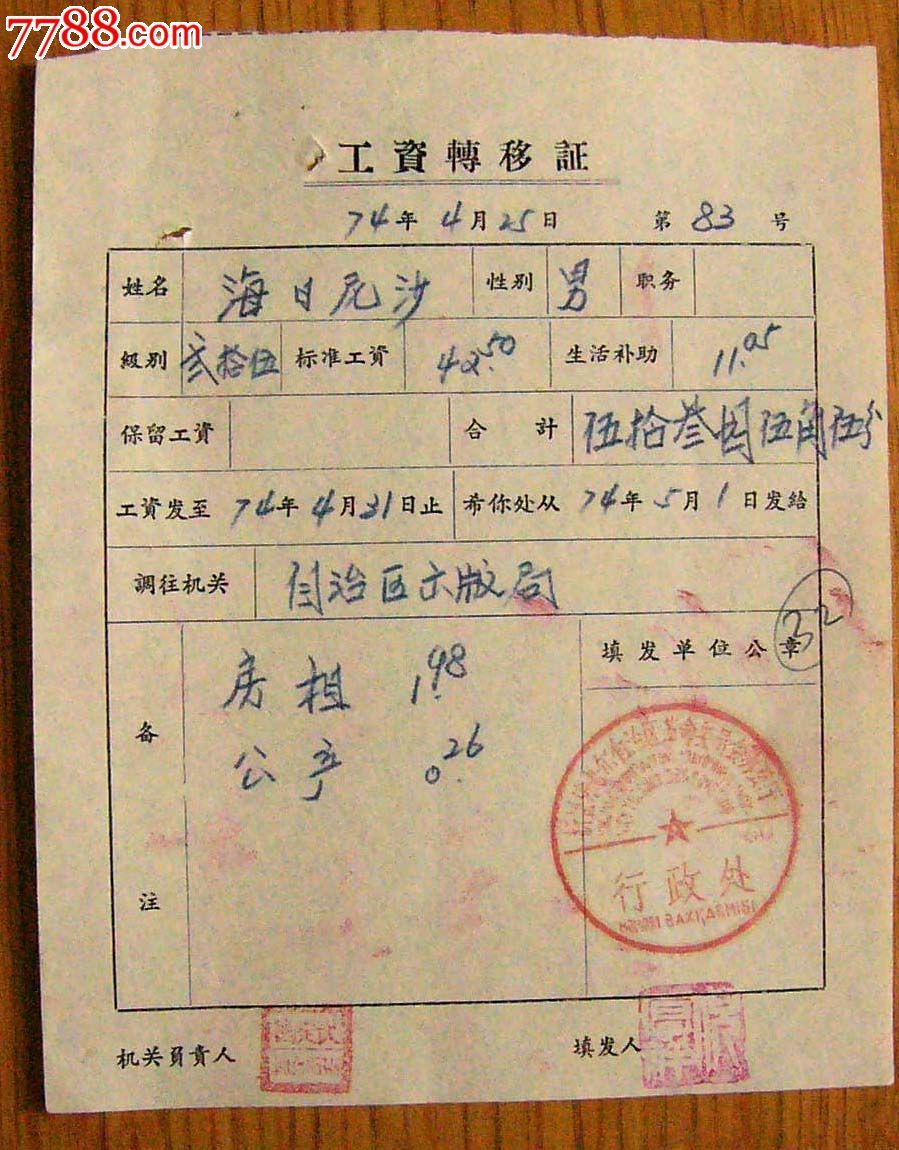 7788.com
工資轉移証
74年4月25日 第83号
姓名 海日尼沙 性别 男 职务
級别 贰拾伍 标准工資 42.50 生活补助 11.05
保留工資 合計 伍拾叁圆伍角伍分
工資发至 74年4月31日止 希你处从 74年5月1日发给
調往机关 自治区出版局
32
备注 房租 1.98 填发单位公章
公产 0.26
行政处
机关負責人 填发人